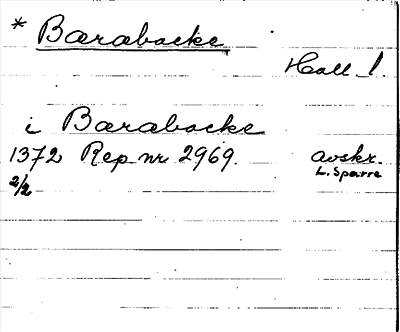 * Bærabacke
Hall !
i Bærabacke
1372 Rep nr 2969. avskr.
2/2 L. Sparre